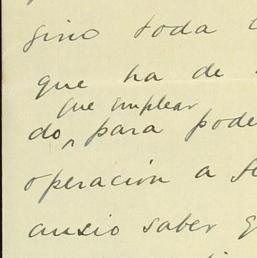 gino toda
que ha de
que emplear
do para pode
operación a
ansio saber q